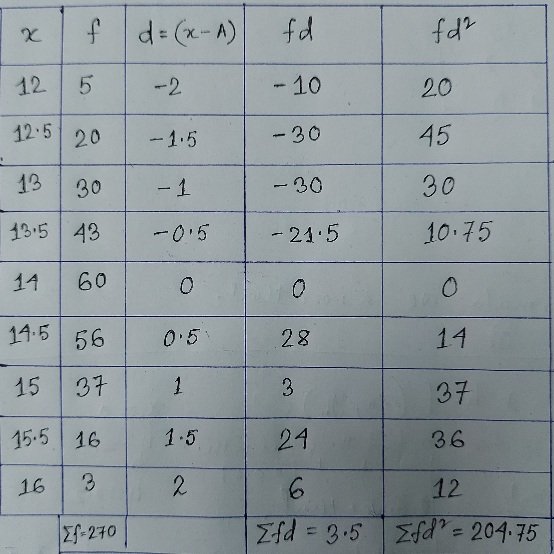 x f d = (x - A) fd fd²
12 5 -2 -10 20
12.5 20 -1.5 -30 45
13 30 -1 -30 30
13.5 43 -0.5 -21.5 10.75
14 60 0 0 0
14.5 56 0.5 28 14
15 37 1 3 37
15.5 16 1.5 24 36
16 3 2 6 12
Σf=270 Σfd = 3.5 Σfd² = 204.75